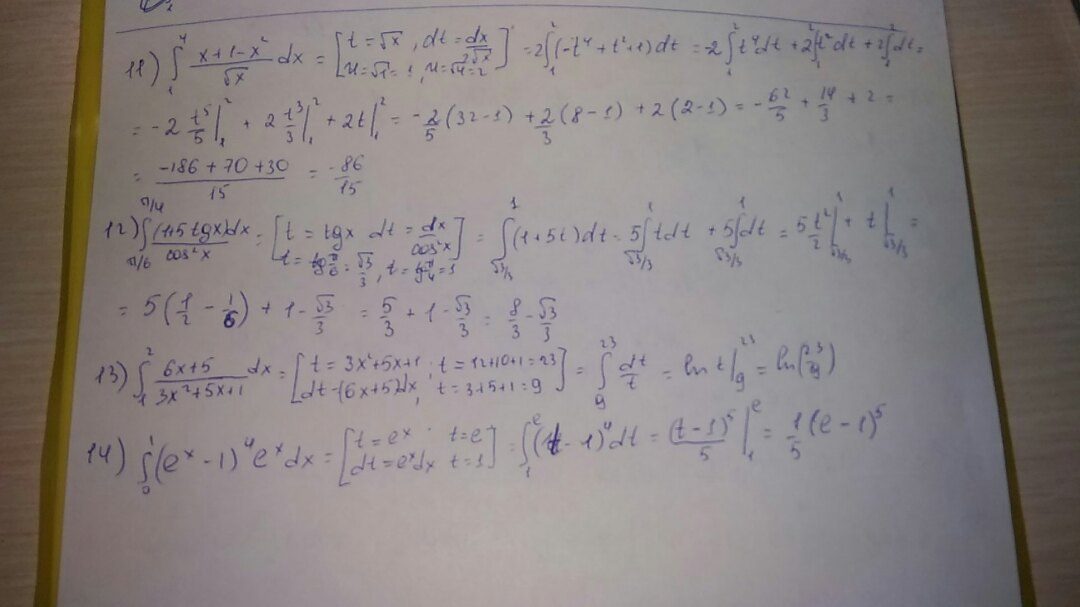 11) ∫₁⁴ (x+1-x²)/√x dx = [t=√x, dt=dx/2√x; u=√1=1, u=√4=2] = 2∫₁²(-t⁴+t²+1)dt = -2∫₁²t⁴dt + 2∫₁²t²dt + 2∫₁²dt =
= -2 t⁵/5|₁² + 2 t³/3|₁² + 2t|₁² = -2/5(32-1) + 2/3(8-1) + 2(2-1) = -62/5 + 14/3 + 2 =
= (-186+70+30)/15 = -86/15
12) ∫_{π/6}^{π/4} (1+5tgx)dx/cos²x = [t=tgx dt=dx/cos²x; t=tgπ/6=√3/3, t=tgπ/4=1] = ∫_{√3/3}^1(1+5t)dt = 5∫_{√3/3}^1 tdt + 5∫_{√3/3}^1 dt = 5 t²/2|_{√3/3}^1 + t|_{√3/3}^1 =
= 5(1/2 - 1/6) + 1 - √3/3 = 5/3 + 1 - √3/3 = 8/3 - √3/3
13) ∫₁² (6x+5)/(3x²+5x+1) dx = [t=3x²+5x+1; t=12+10+1=23; dt=(6x+5)dx, t=3+5+1=9] = ∫₉²³ dt/t = ln t|₉²³ = ln(23/9)
14) ∫₀¹(eˣ-1)⁴eˣdx = [t=eˣ t=e; dt=eˣdx t=1] = ∫₁ᵉ(t-1)⁴dt = (t-1)⁵/5|₁ᵉ = 1/5(e-1)⁵